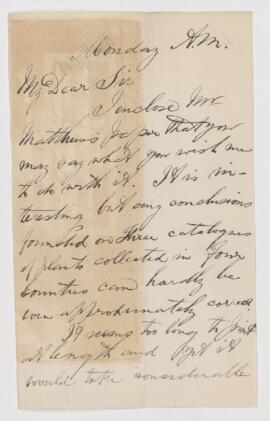 Monday A.M.
My Dear Sir
I enclose Mr
Matthews paper that you
may say what you wish me
to do with it. It is in-
teresting but any conclusions
founded on three catalogues
of plants collected in four
counties can hardly be
even approximately correct
It seems too long to print
at length and yet it
would take considerable